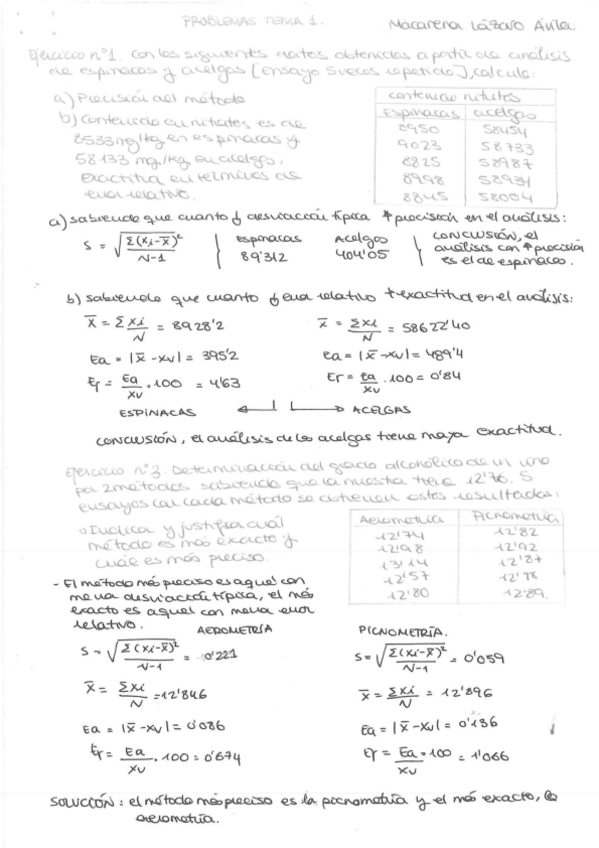 PROBLEMAS TEMA 1.
Macarena Lázaro Ávila.
Ejercicio nº1. Con los siguientes datos obtenidos a partir de análisis
de espinacas y acelgas [Ensayo 5 veces repetido], calcula:
a) Precisión del método
b) Contenido en nitratos es de
8533 mg/kg en espinacas y
58133 mg/kg en acelgas,
exactitud en términos de
error relativo.
Contenido nitratos
Espinacas acelgas
8950 58454
9023 58733
8825 58987
8998 58934
8845 58004
a) sabiendo que cuanto ↓ desviación típica ↑ precisión en el análisis:
S = √Σ(xi-x̄)² / N-1
Espinacas Acelgas
89'312 404'05
CONCLUSIÓN, el
análisis con ↑ precisión
es el de espinacas.
b) sabiendo que cuanto ↓ error relativo ↑ exactitud en el análisis:
x̄ = Σ xi / N = 8928'2 x̄ = Σxi / N = 58622'40
Ea = |x̄ - xv| = 395'2 Ea = |x̄ - xv| = 489'4
Er = Ea / xv . 100 = 4'63 Er = Ea / xv . 100 = 0'84
ESPINACAS ← → ACELGAS
CONCLUSIÓN, el análisis de las acelgas tiene mayor exactitud.
Ejercicio nº3. Determinación del grado alcohólico de un vino
por 2 métodos sabiendo que la muestra tiene 12'76. 5
ensayos con cada método se obtienen estos resultados:
Indica y justifica cuál
método es más exacto y
cuál es más preciso.
Aerometría Picnometría
12'74 12'82
12'98 12'92
13'14 12'87
12'57 12'98
12'80 12'89.
- El método más preciso es aquel con
menor desviación típica, el más
exacto es aquel con menor error
relativo.
AEROMETRÍA PICNOMETRÍA.
S = √Σ(xi-x̄)² / N-1 = 0'221 S = √Σ(xi-x̄)² / N-1 = 0'059
x̄ = Σxi / N = 12'846 x̄ = Σxi / N = 12'896
Ea = |x̄ - xv| = 0'086 Ea = |x̄ - xv| = 0'136
Er = Ea / xv . 100 = 0'674 Er = Ea / xv . 100 = 1'066
SOLUCIÓN: el método más preciso es la picnometría y el más exacto, la
aerometría.